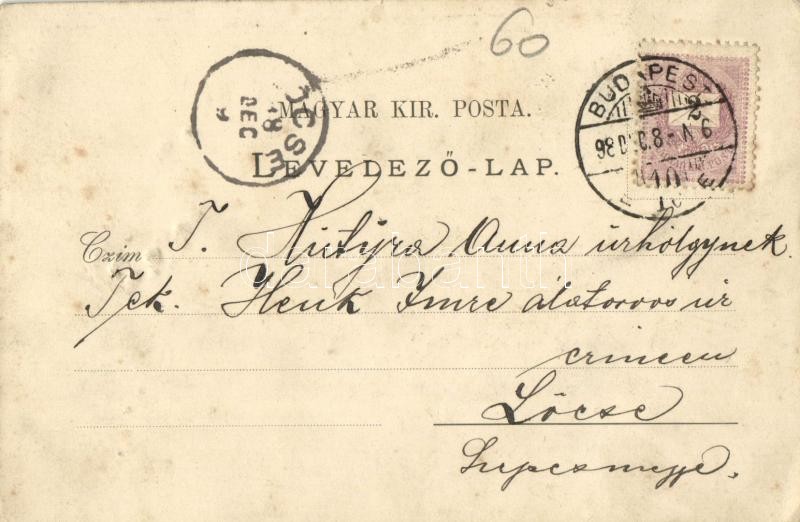 60
MAGYAR KIR. POSTA.
LEVELEZŐ-LAP.
LŐCSE
98 DEC 9
BUDAPEST
98 DEC. 8 - N 6
Czim T. Hutÿra Anna úrhölgynek
Tek. Henk Imre álatorvos úr
Lőcse
Szepesmegye.
darabanth